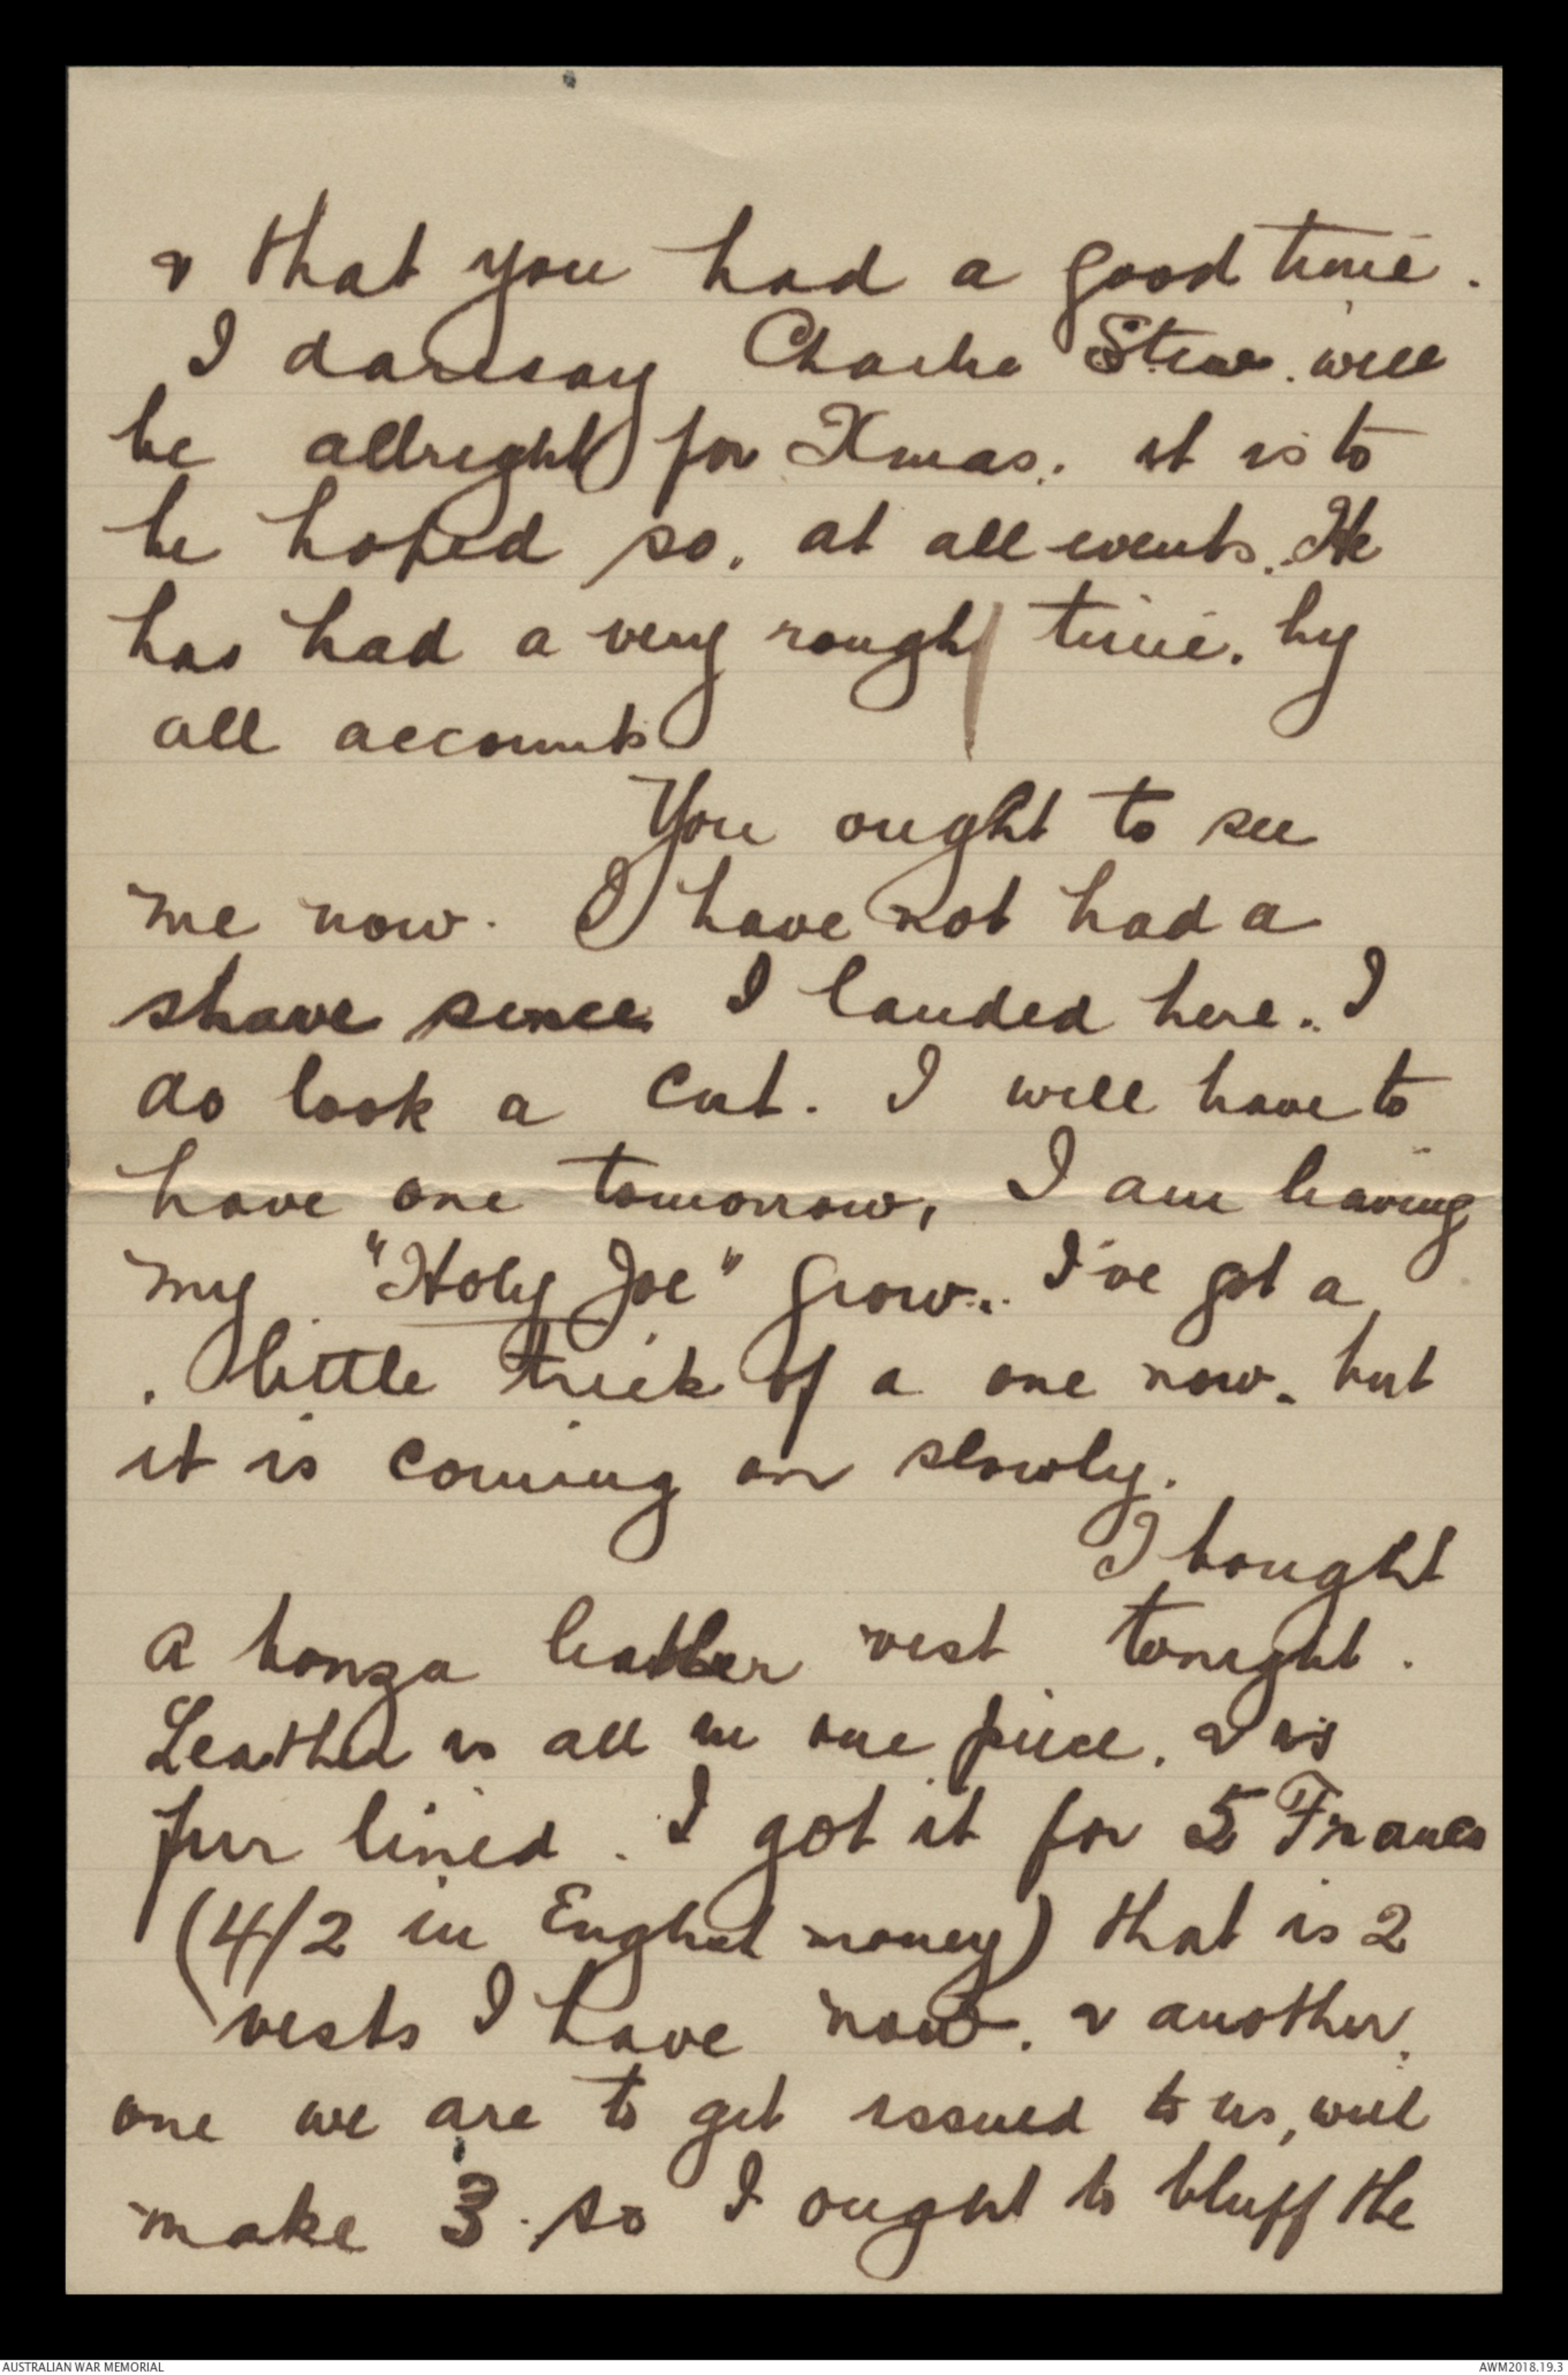 & that you had a good time.
I daresay Charlie Stew. will
be allright for Xmas. it is to
be hoped so. at all events. He
has had a very rough time. by
all accounts
You ought to see
me now. I have not had a
shave since I landed here. I
do look a cut. I will have to
have one tomorrow, I am leaving
my "Holy Joe" grow. I've got a
little trick of a one now. but
it is coming on slowly.
I bought
a bonza leather vest tonight.
Leather is all in one piece. & is
fur lined. I got it for 5 Francs
(4/2 in English money) that is 2
vests I have now. & another
one we are to get issued to us, will
make 3. so I ought to bluff the
AUSTRALIAN WAR MEMORIAL
AWM2018.19.3